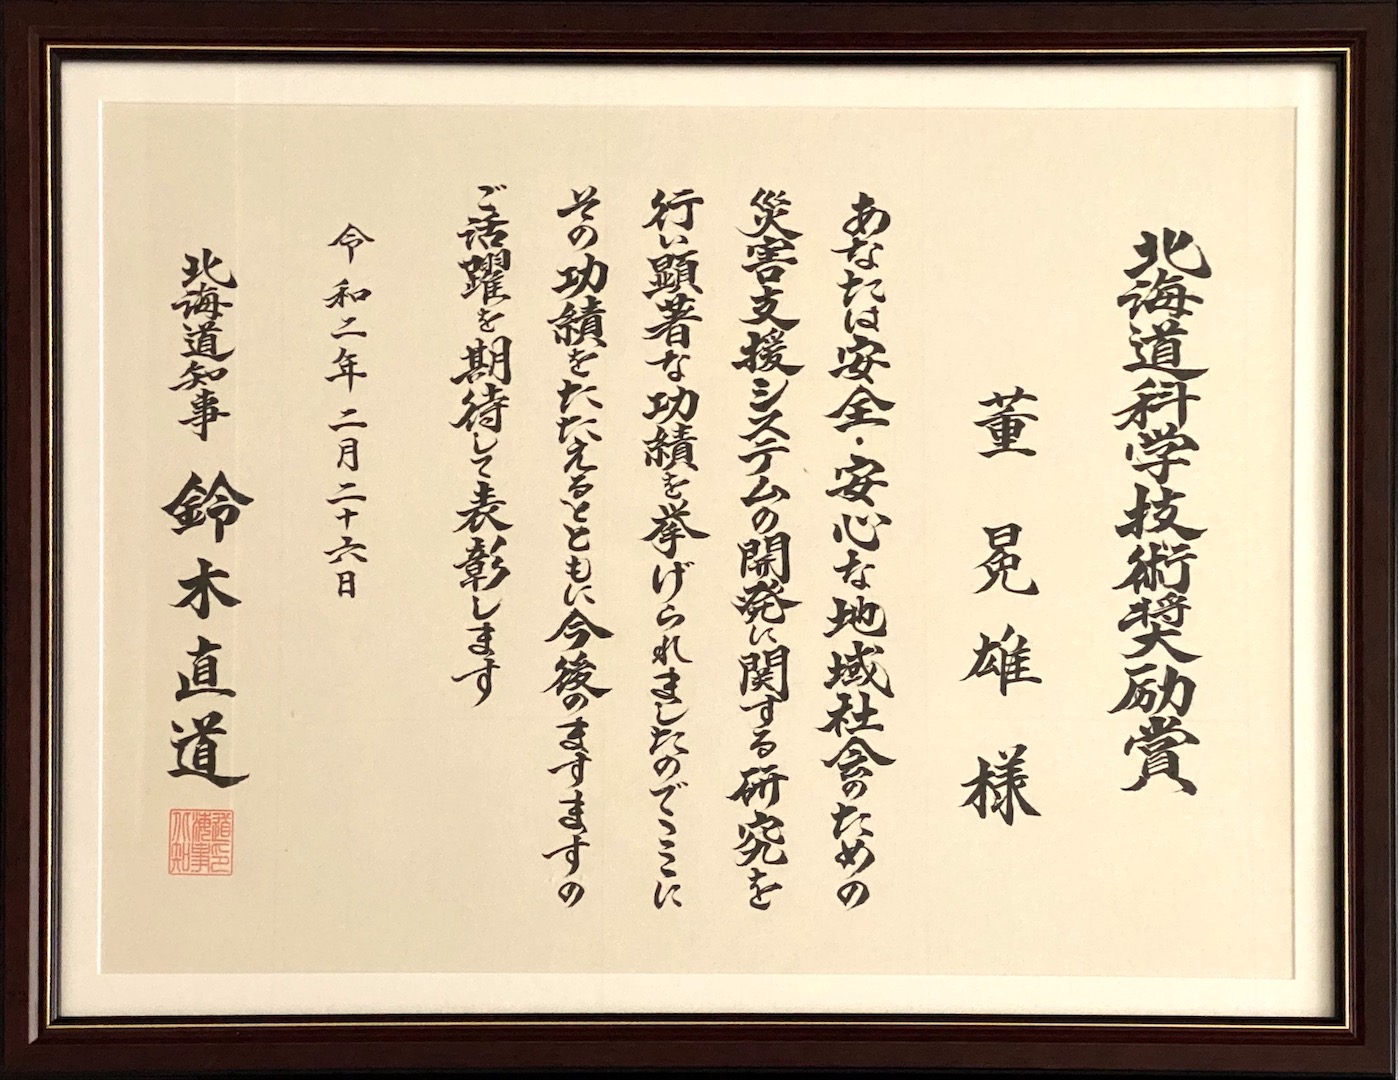 北海道科学技術奨励賞
董晃雄様
あなたは安全・安心な地域社会のための
災害支援システムの開発に関する研究を
行い顕著な功績を挙げられましたのでここに
その功績をたたえるとともに今後のますますの
ご活躍を期待して表彰します
令和二年二月二十六日
北海道知事 鈴木直道
北海道知事印